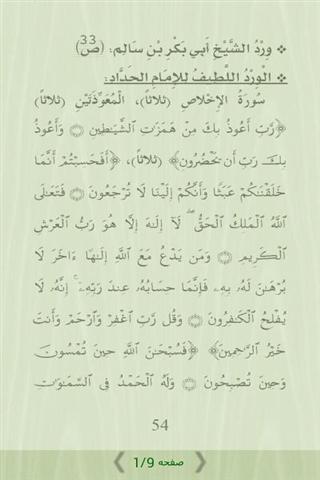 ❖ وِرْدُ الشَّيْخِ أَبِي بَكْرِ بْنِ سَالِمٍ: (ص33)
❖ الْوِرْدُ اللَّطِيفُ لِلْإِمَامِ الحَدَّادِ:
سُورَةُ الإِخْلَاصِ (ثلاثاً)، الْمُعَوِّذَتَيْنِ (ثلاثاً)
﴿رَّبِّ أَعُوذُ بِكَ مِنْ هَمَزَاتِ الشَّيَاطِينِ ۝ وَأَعُوذُ
بِكَ رَبِّ أَن يَحْضُرُونِ﴾ (ثلاثاً)، ﴿أَفَحَسِبْتُمْ أَنَّمَا
خَلَقْنَاكُمْ عَبَثًا وَأَنَّكُمْ إِلَيْنَا لَا تُرْجَعُونَ ۝ فَتَعَالَى
اللَّهُ الْمَلِكُ الْحَقُّ ۖ لَا إِلَهَ إِلَّا هُوَ رَبُّ الْعَرْشِ
الْكَرِيمِ ۝ وَمَن يَدْعُ مَعَ اللَّهِ إِلَهًا ءَاخَرَ لَا
بُرْهَانَ لَهُ بِهِ فَإِنَّمَا حِسَابُهُ عِندَ رَبِّهِ ۚ إِنَّهُ لَا
يُفْلِحُ الْكَافِرُونَ ۝ وَقُل رَّبِّ اغْفِرْ وَارْحَمْ وَأَنتَ
خَيْرُ الرَّاحِمِينَ﴾ ﴿فَسُبْحَانَ اللَّهِ حِينَ تُمْسُونَ
وَحِينَ تُصْبِحُونَ ۝ وَلَهُ الْحَمْدُ فِي السَّمَاوَاتِ
54
صفحه 1/9